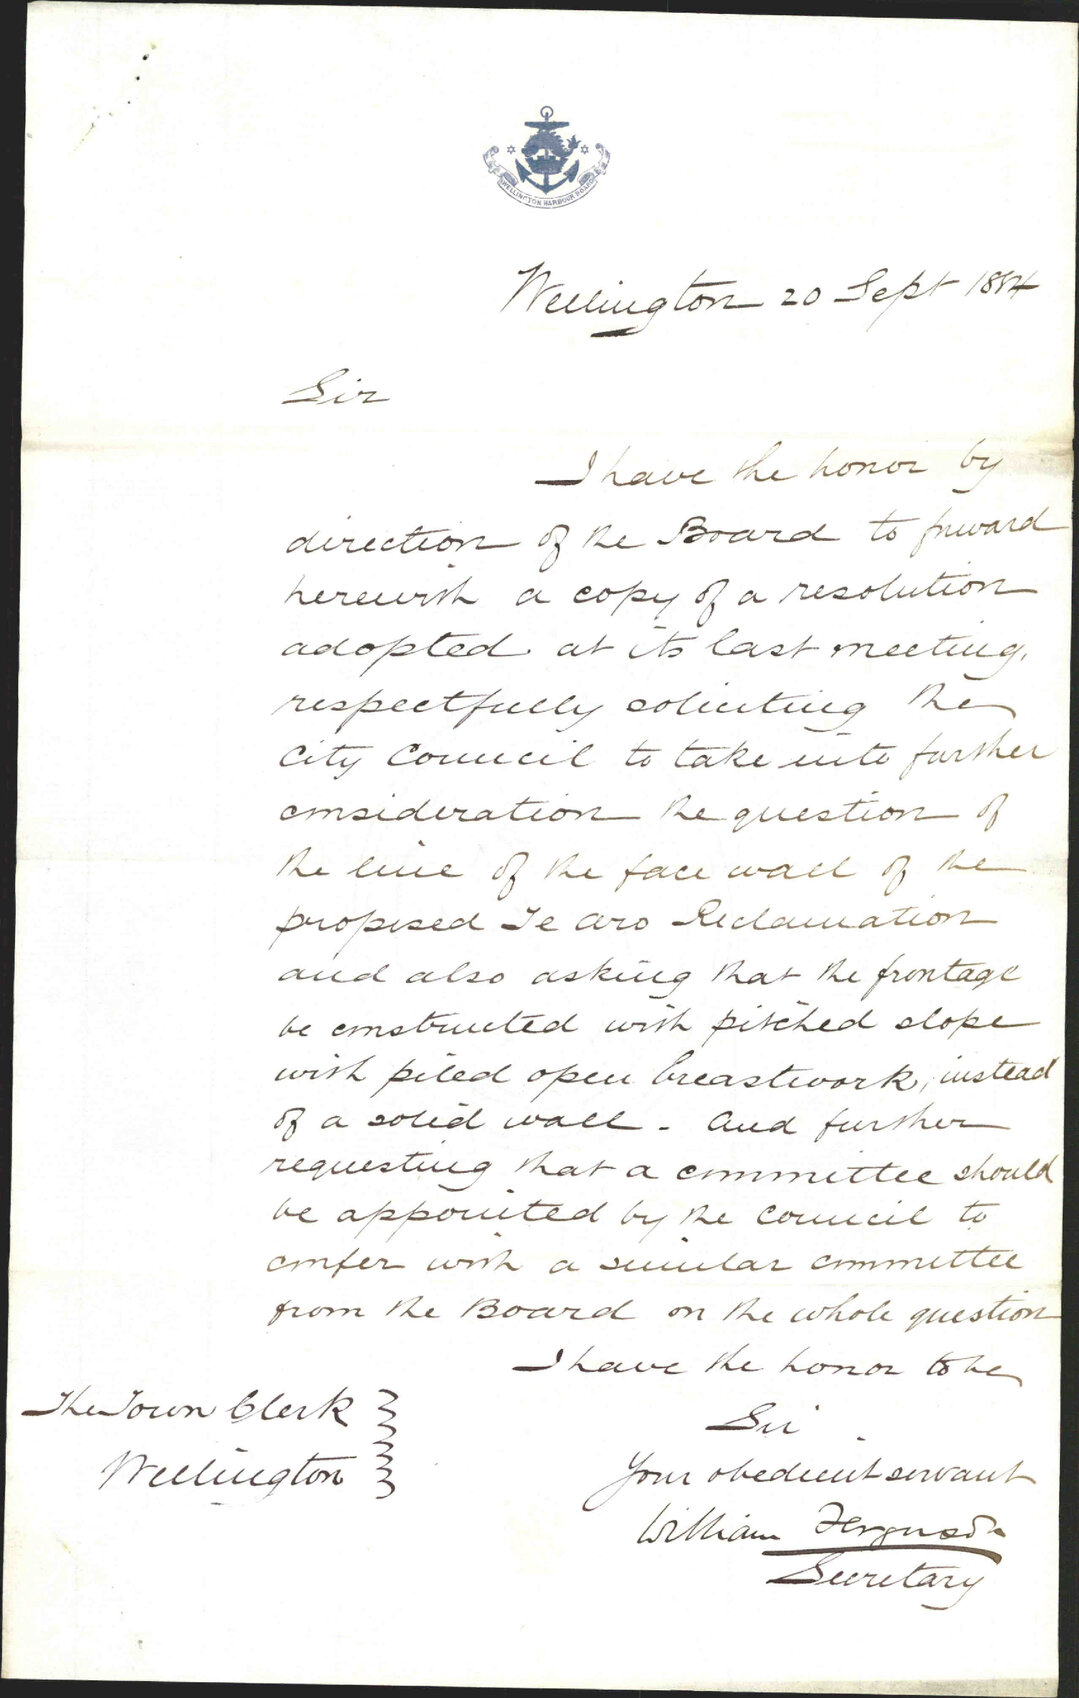 WELLINGTON HARBOUR BOARD
Wellington 20 Sept 1884
Sir
I have the honor by
direction of the Board to forward
herewith a copy of a resolution
adopted at its last meeting,
respectfully soliciting the
City Council to take into further
consideration the question of
the line of the face wall of the
proposed Te Aro Reclamation
and also asking that the frontage
be constructed with pitched slope
with piled open breastwork, instead
of a solid wall. And further
requesting that a committee should
be appointed by the Council to
confer with a similar committee
from the Board on the whole question
I have the honor to be
Sir
Your obedient servant
William Ferguson
Secretary
The Town Clerk
Wellington